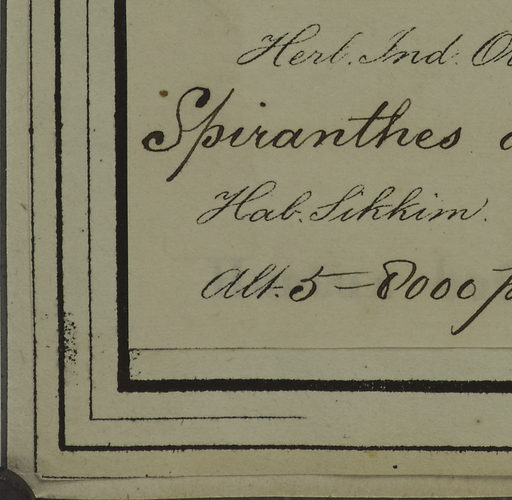 Herb. Ind. Or
Spiranthes
Hab. Sikkim.
Alt. 5-8000